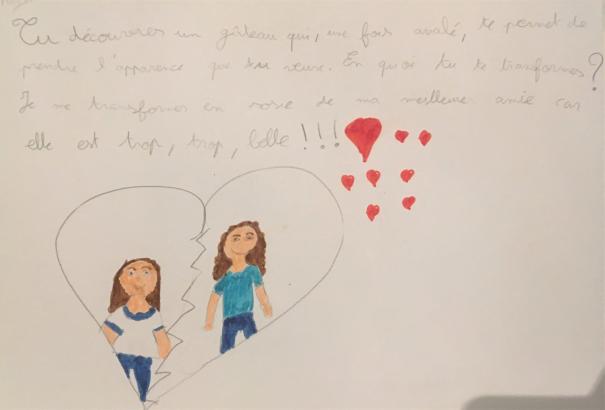 Tu découvres un gâteau qui, une fois avalé, te permet de
prendre l'apparence que tu veux. En quoi tu te transformes ?
Je me transformes en sosie de ma meilleure amie car
elle est trop, trop, belle !!!